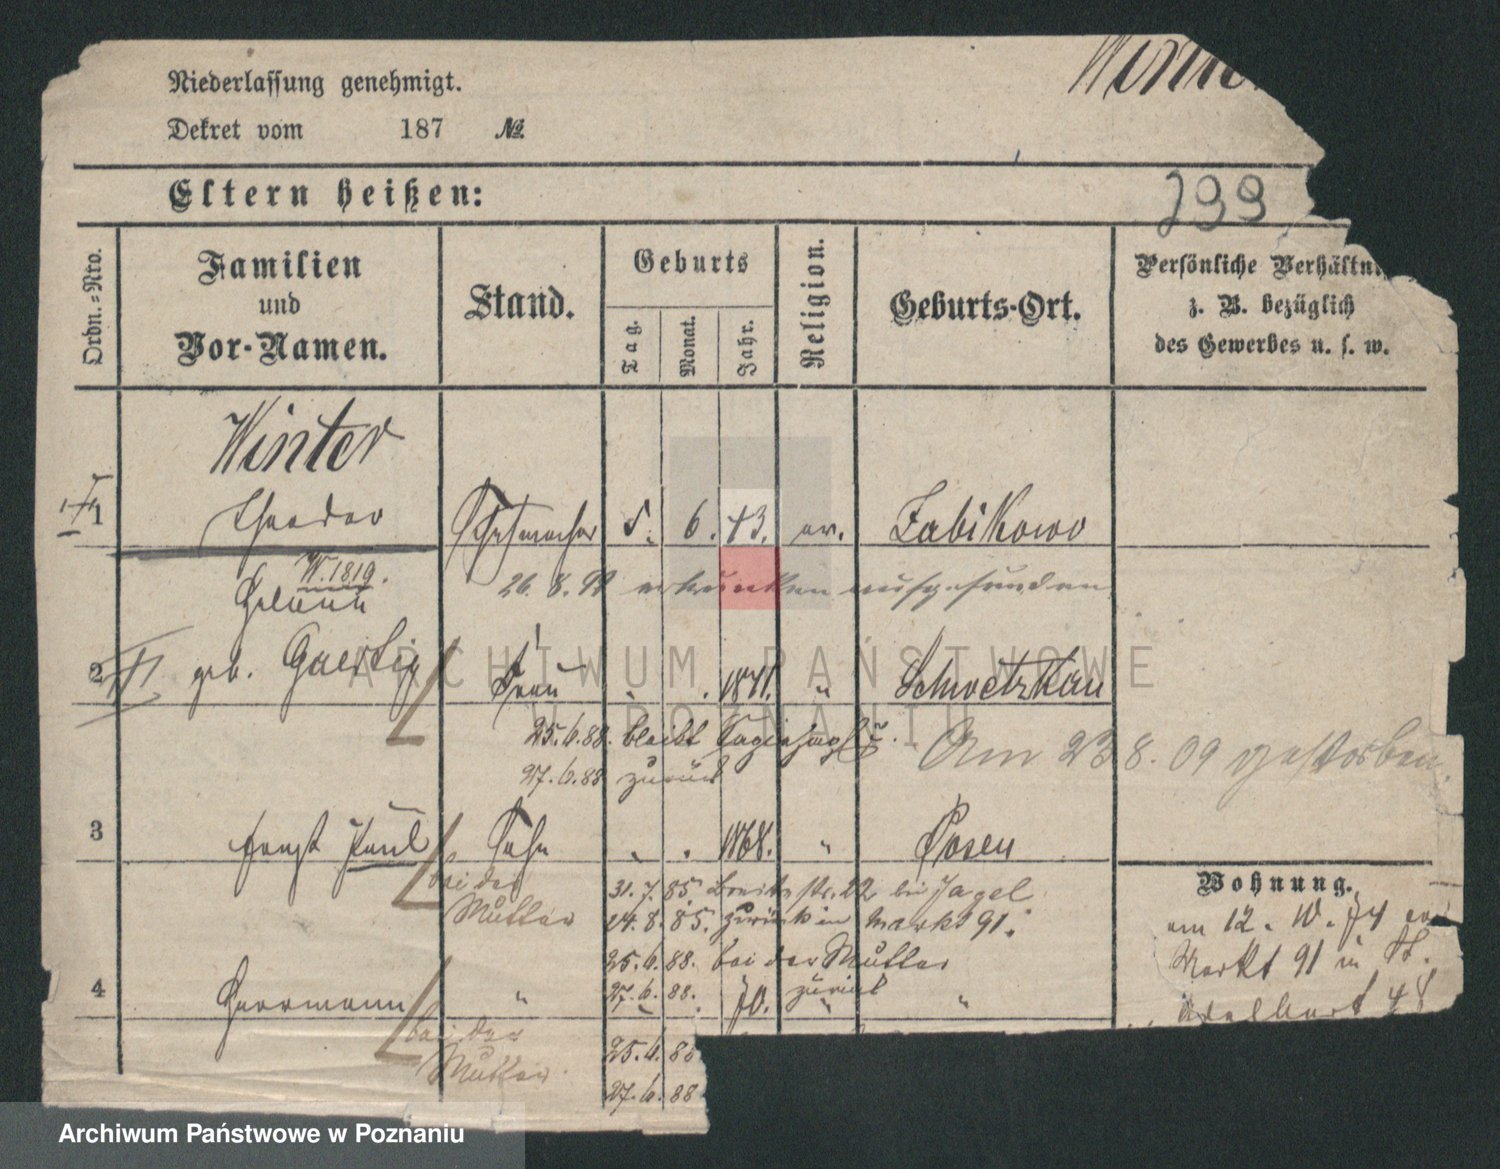 Niederlassung genehmigt.
Dekret vom 187 №
Winter
Eltern heißen:
299
Ordn.=Nro.
Familien
und
Vor-Namen.
Stand.
Geburts
Tag.
Monat.
Jahr.
Religion.
Geburts-Ort.
Persönliche Verhältni
z. B. bezüglich
des Gewerbes u. s. w.
Winter
1 Theodor 6. 43. ev. Zabikowo
W. 1819.
26. 8.
2 geb. Frau 1841. " Schwetzkau
25.6.88. bleibt
27.6.88 zurück
Am 23 8. 09 gestorben
3 Paul Sohn 1868. " Posen
bei der
Mutter
31. 7. 85. str. 22 bei Jagel
24. 8. 85. zurück in Markt 91.
25. 6. 88. bei der Mutter
27. 6. 88. zurück
4 Herrmann " 70. " "
bei der
Mutter
25. 6. 88
27. 6. 88
Wohnung.
am 12. 10. 74
Markt 91 in St.
Adelbert 48
ARCHIWUM PAŃSTWOWE
W POZNANIU
Archiwum Państwowe w Poznaniu